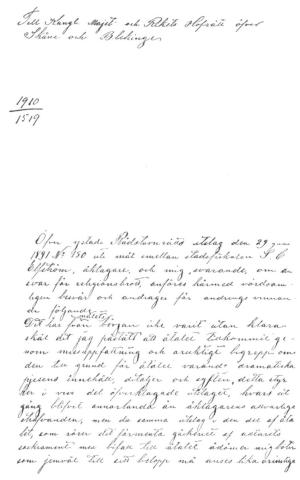 Till Kungl Majst och Rikets Hofrätt öfver
Skåne och Blekinge
1910
1519
Öfver Ystads Rådstuvurätts utslag den 29 juni
1891 No 150 uti mål emellan stadsfiskalen S C
Elfström, åklagare, och mig, svarande, om an
svar för religionsbrott, anföres härmed vördsam
ligen besvär och andrages för ändrings vinnan
de följande:
Det har från början icke varit utan klara
skäl det jag påstått att åtalet tillkommit ge
nom missuppfattning och oriktigt begrepp om
den till grund för åtalet varande dramatiska
piesens innehåll, detaljer och syften, detta styr
kes i viss del öfverklagade utslaget, hvars ut
gång blifvit annorlunda än åklagarens
men då samma utslag i den del af åta
let, som rörer det förmenta gäckeriet af altarets
sakrament med bifall till åtalet ådömer mig böter
som jemväl till sitt belopp må anses lika